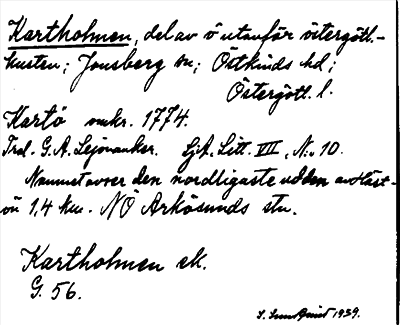 Kartholmen, del av ö utanför östergötl.-
kusten; Jonsberg sn; Östkinds hd;
Östergötl. l.
Kartö omkr. 1774.
Trol. G. A. Lejonanker. Sjk. Litt. VII, N:o 10.
Namnet avser den nordligaste udden av Häst-
ön 1,4 km. NÖ Arkösunds stn.
Kartholmen ek.
G. 56.
1939.